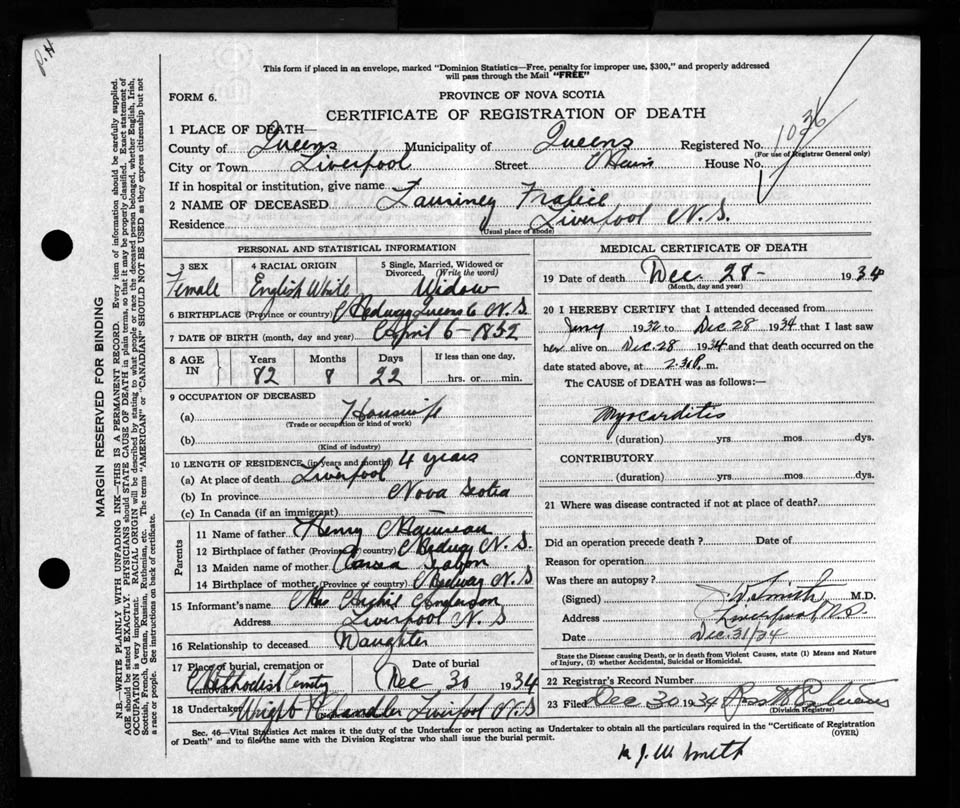 P.H
This form if placed in an envelope, marked "Dominion Statistics—Free, penalty for improper use, $300," and properly addressed
will pass through the Mail "FREE"
FORM 6.
PROVINCE OF NOVA SCOTIA
CERTIFICATE OF REGISTRATION OF DEATH
1 PLACE OF DEATH—
County of Queens Municipality of Queens Registered No.
(For use of Registrar General only)
City or Town Liverpool Street Main House No.
If in hospital or institution, give name
2 NAME OF DECEASED
Residence Liverpool N.S.
(Usual place of abode)
PERSONAL AND STATISTICAL INFORMATION
3 SEX Female
4 RACIAL ORIGIN English White
5 Single, Married, Widowed or Divorced (Write the word) Widow
6 BIRTHPLACE (Province or country) Medway Queens Co N.S.
7 DATE OF BIRTH (month, day and year) April 6 - 1852
8 AGE IN Years 82 Months 8 Days 22 If less than one day, hrs. or min.
9 OCCUPATION OF DECEASED
(a) Housewife
(Trade or occupation or kind of work)
(b)
(Kind of industry)
10 LENGTH OF RESIDENCE (in years and months) 4 years
(a) At place of death Liverpool
(b) In province Nova Scotia
(c) In Canada (if an immigrant)
Parents
11 Name of father Henry
12 Birthplace of father (Province or country) Medway N.S.
13 Maiden name of mother
14 Birthplace of mother (Province or country) Medway N.S
15 Informant's name Mrs Archie Anderson
Address Liverpool N.S
16 Relationship to deceased Daughter
17 Place of burial, cremation or removal Methodist Cemty Date of burial Dec 30 1934
18 Undertaker Wright Chandler Liverpool N.S
MEDICAL CERTIFICATE OF DEATH
19 Date of death Dec. 28 - 1934
(Month, day and year)
20 I HEREBY CERTIFY that I attended deceased from
1932 to Dec. 28 1934 that I last saw
her alive on Dec. 28 1934 and that death occurred on the
date stated above, at 2.30 P. m.
The CAUSE OF DEATH was as follows:—
Myocarditis
(duration) yrs mos dys.
CONTRIBUTORY
(duration) yrs mos dys.
21 Where was disease contracted if not at place of death?
Did an operation precede death? Date of
Reason for operation
Was there an autopsy?
(Signed) J.W. Smith M.D.
Address Liverpool N.S.
Date Dec. 31/34
State the Disease causing Death, or in death from Violent Causes, state (1) Means and Nature
of Injury, (2) whether Accidental, Suicidal or Homicidal.
22 Registrar's Record Number
23 Filed Dec 30 1934
(Division Registrar)
Sec. 46—Vital Statistics Act makes it the duty of the Undertaker or person acting as Undertaker to obtain all the particulars required in the "Certificate of Registration
of Death" and to file the same with the Division Registrar who shall issue the burial permit.
(OVER)
J. W. Smith
MARGIN RESERVED FOR BINDING
N.B.—WRITE PLAINLY WITH UNFADING INK—THIS IS A PERMANENT RECORD. Every item of information should be carefully supplied.
AGE should be stated EXACTLY. PHYSICIANS should STATE CAUSE OF DEATH in plain terms, so that it may be properly classified. Exact statement of
OCCUPATION is very important. RACIAL ORIGIN will be described by stating to what people or race the deceased person belonged, whether English, Irish,
Scottish, French, German, Russian, Ruthenian, etc. The terms "AMERICAN" or "CANADIAN" SHOULD NOT BE USED as they express citizenship but not
a race or people. See instructions on back of certificate.